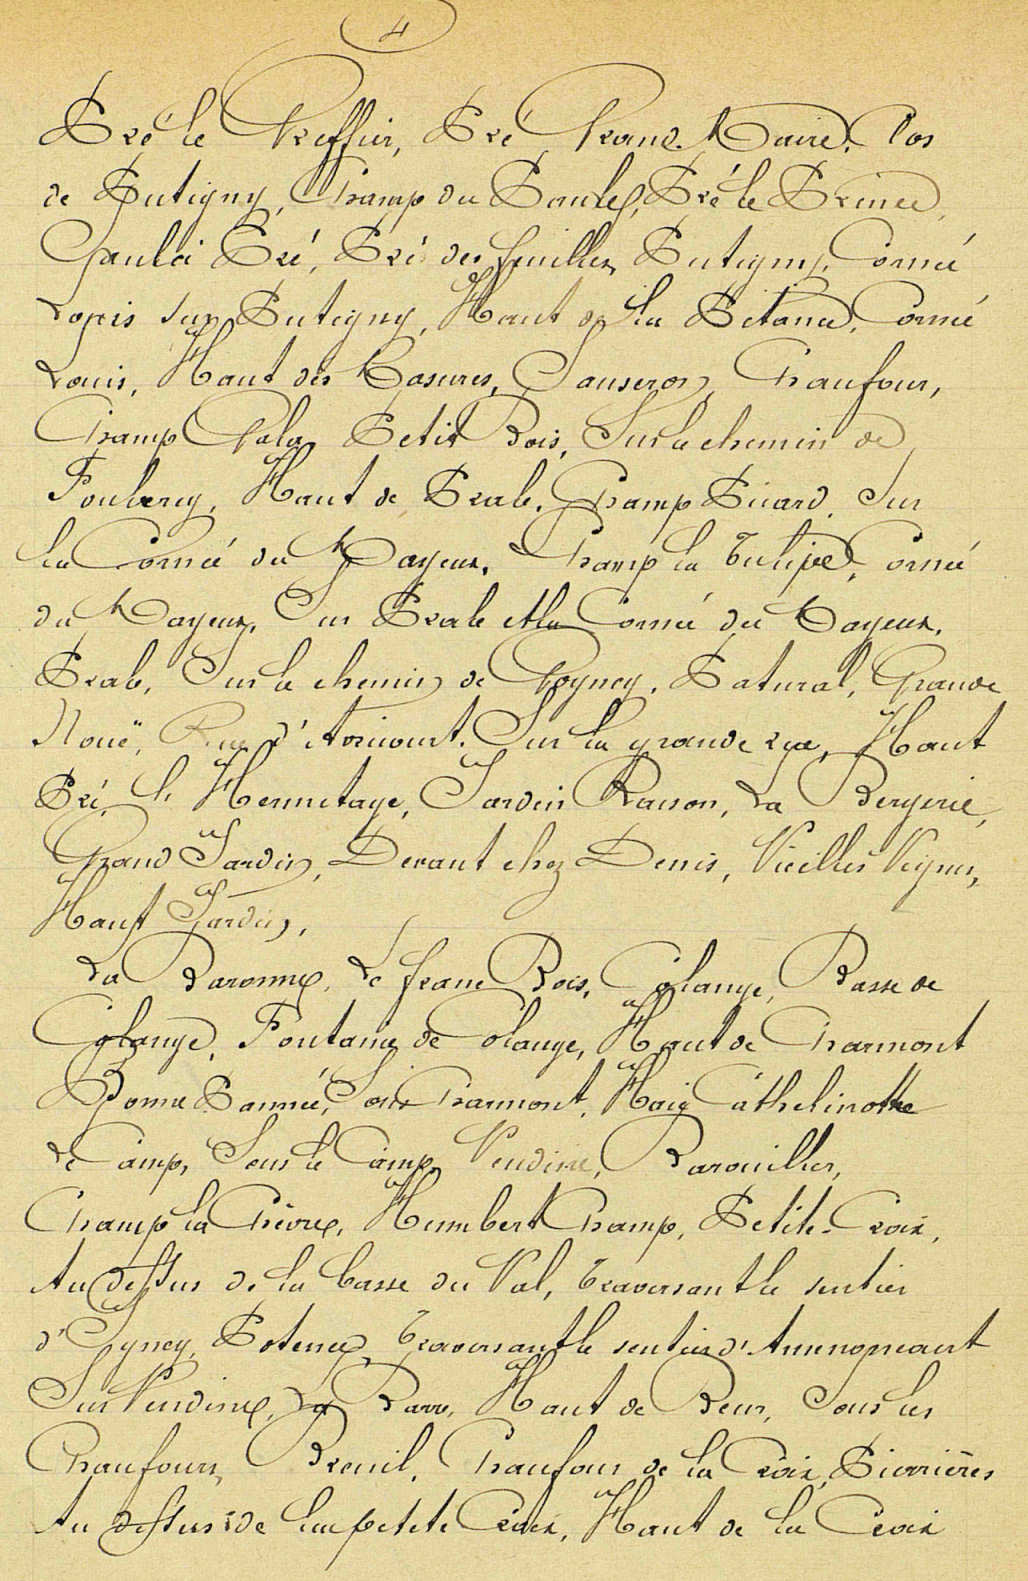 4
Pré le Greffier, Pré Grand-Maire, Clos
de Putigny, Champ du Saule, Pré le Prince,
Gaulei Pré, Pré des feuilles, Putigny, Corvée
Logis sur Putigny, Haut de la Pitance, Corvée
Louis, Haut des Masures, Sauseron, Chaufour,
Champ Vala, Petit Bois, Sur le chemin de
Foulcrey, Haut de Prale, Champ Picard, Sur
la Corvée du Mayeur, Champ la Tulipe, Corvée
du Mayeur, Sur Prale et la Corvée du Mayeur,
Prale, Sur le chemin de Gogney, Patural, Grande
Nouë, Rue d'Avricourt, Sur la grande rye, Haut
Pré, l'Hermitage, Jardin Raison, La Bergerie,
Grand Jardin, Devant chez Denis, Vieilles Vignes,
Haut Jardin,
La Baronne, Le franc Bois, Colange, Basse de
Colange, Fontaine de Colange, Haut de Charmont
Bonne Saunée, Sous Charmont, Haie Cathelinotte
Le Camp, Sous le Camp, Vendine, Barouilles,
Champ la Chèvre, Humbert Champ, Petite-Croix,
Au dessus de la basse du Val, Traversant le sentier
d'Igney, Potence, Traversant le sentier d'Amenoncourt
Sur Vendine, La Barre, Haut de Reux, Sous les
Chaufours, Breuil, Chaufour de la Croix, Pierrières
Au dessus de la petite Croix, Haut de la Croix